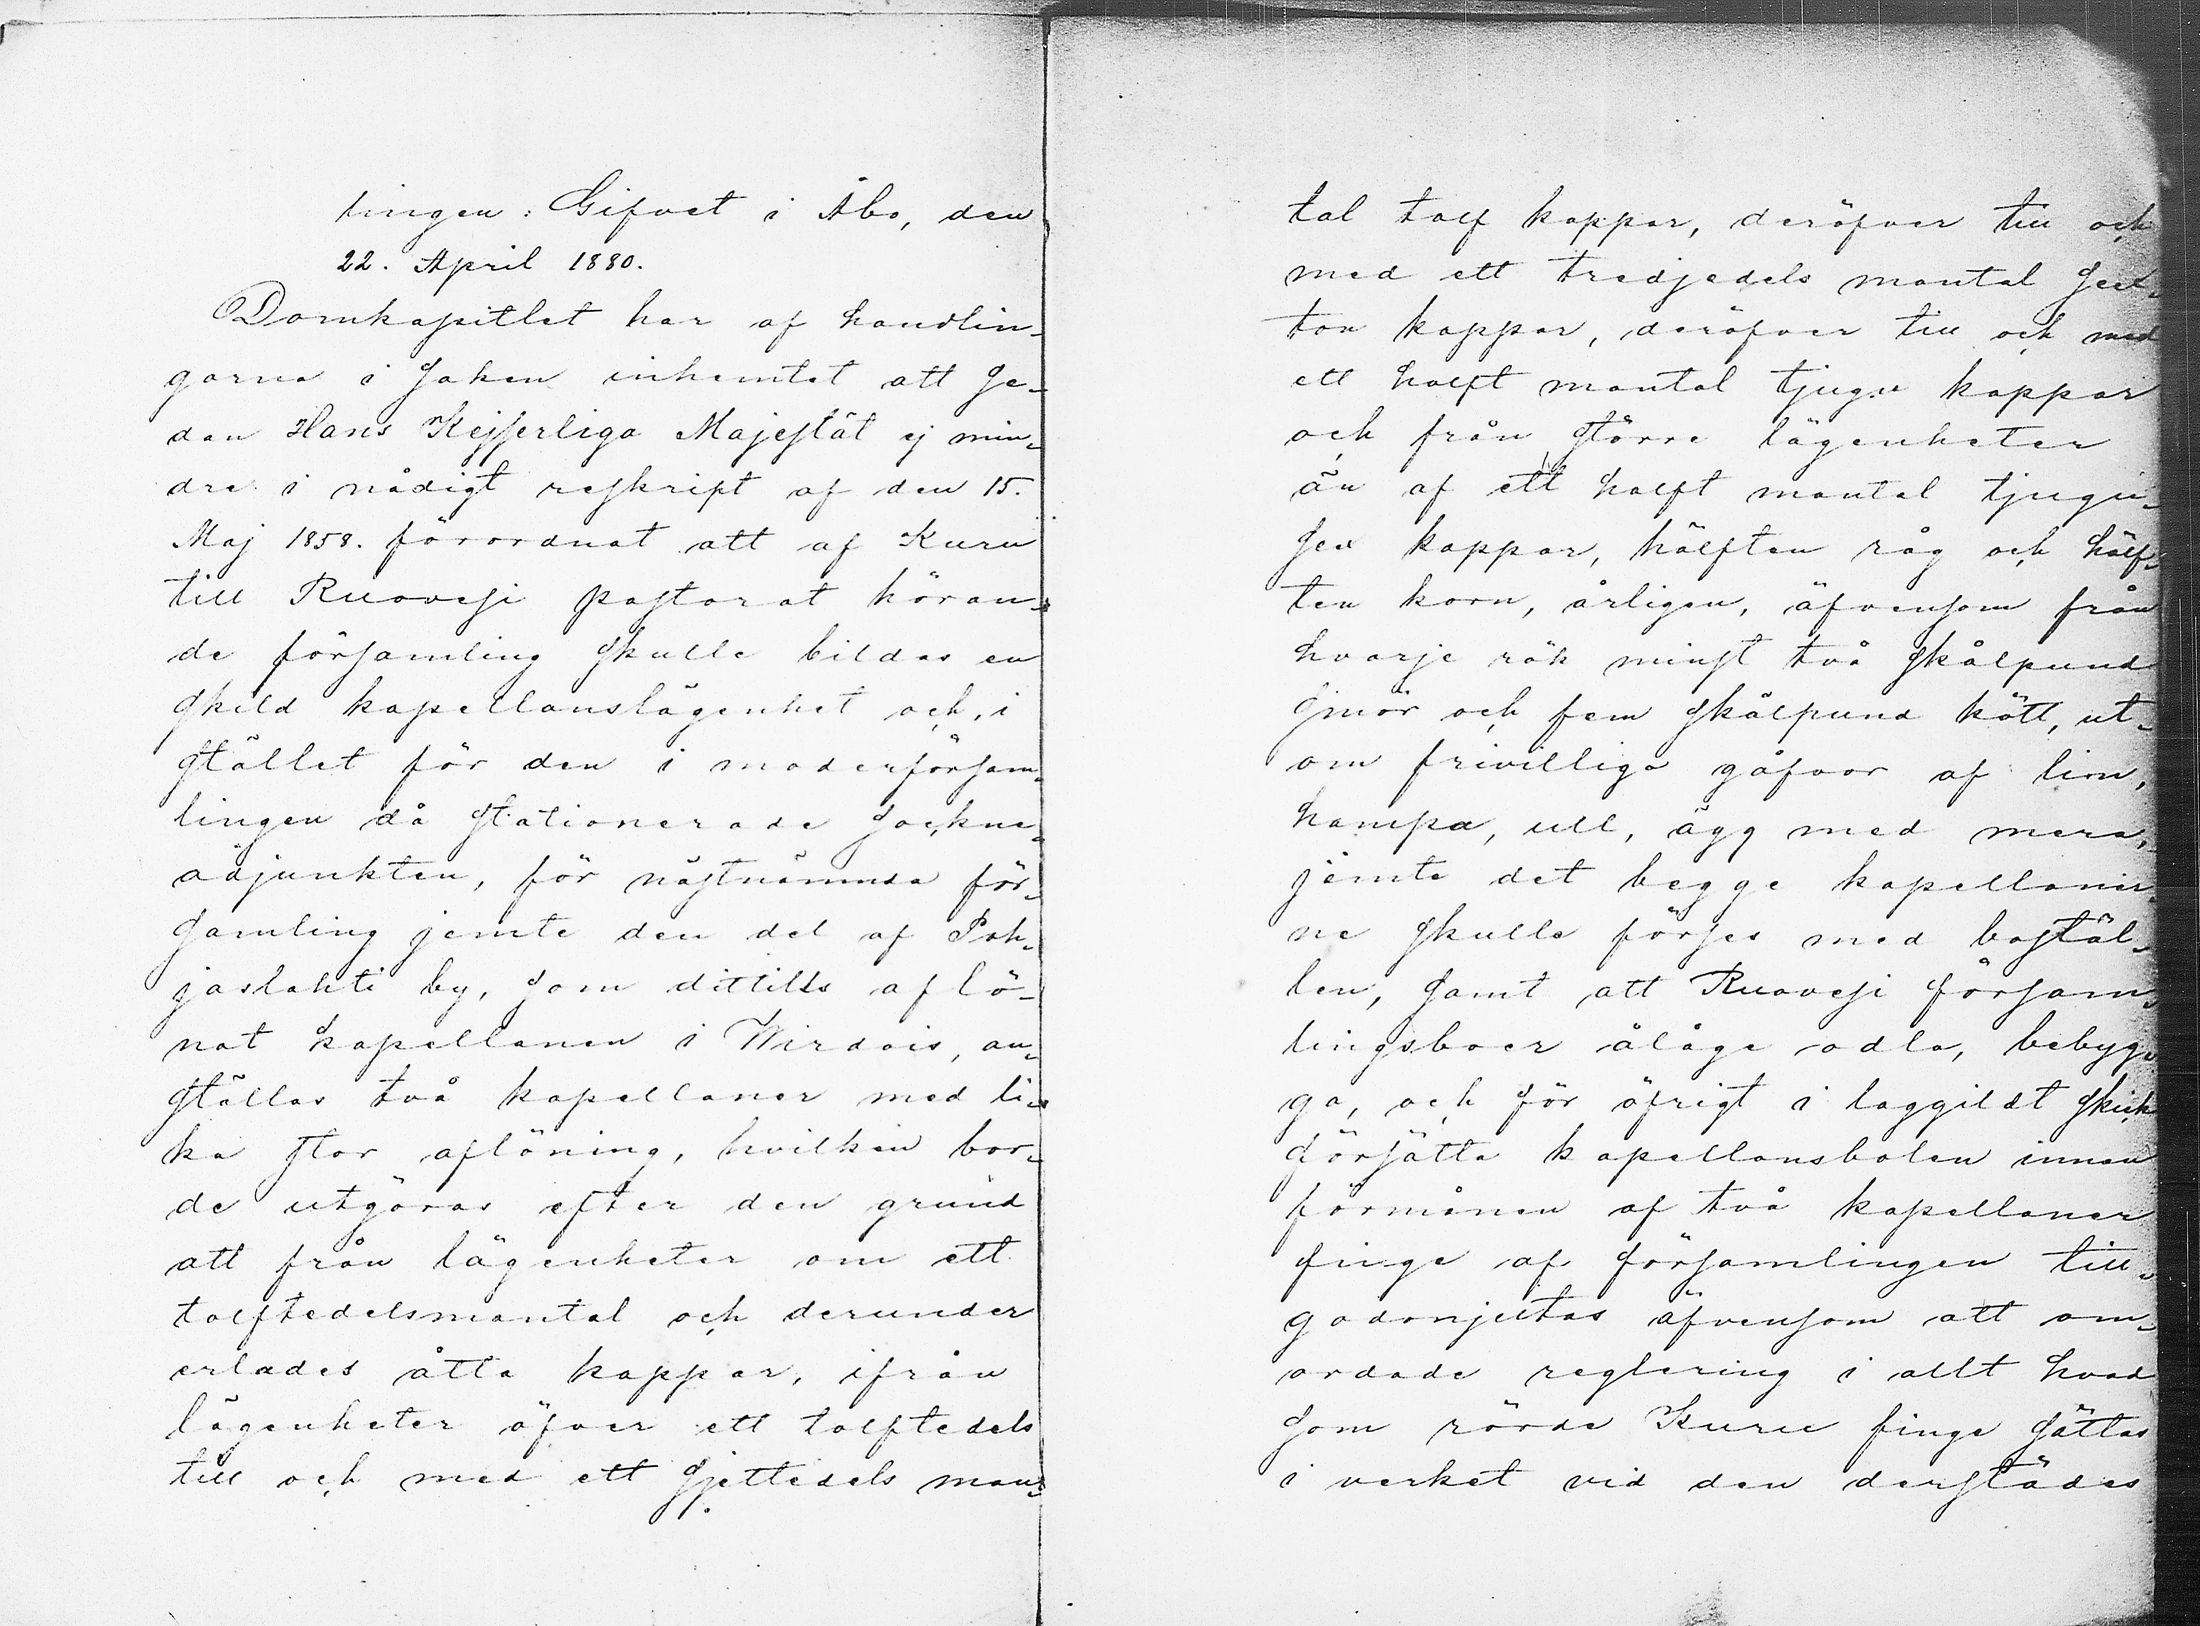 tingen: Gifvet i Åbo, den
22. April 1880.
Domkapitlet har af handlin-
garna i saken inhemtat att se-
dan Hans Kejserliga Majestät ej min-
dre i nådigt reskript af den 15.
Maj 1858. förordnat att af Kuru
till Ruovesi pastorat höran-
de församling skulle bildas en
skild kapellanslägenhet och, i
stället för den i moderförsam-
lingen då stationerade sockne-
adjunkten, för nästnämnda för-
samling jemte den del af Poh-
jaslahti by, som dittills aflö-
nat kapellanen i Wirdois, an-
ställas två kapellaner med li-
ka stor aflöning, hvilken bor-
de utgöras efter den grund
att från lägenheter om ett
tolftedelsmantal och derunder
erlades åtta kappar, ifrån
lägenheter öfver ett tolftedels
till och med ett sjettedels man-
tal tolf kappar, deröfver till och
med ett tredjedels mantal sex-
ton kappar, deröfver till och med
ett halft mantal tjugu kappar
och från större lägenheter
än af ett halft mantal tjugu-
sex kappar, hälften råg och hälf-
ten korn, årligen, äfvensom från
hvarje rök minst två skålpund
smör och fem skålpund kött, ut-
om frivilliga gåfvor af lin,
hampa, ull, ägg med mera,
jämte det begge kapellaner-
ne skulle förses med boställ-
len, samt att Ruovesi försam-
lingsboer ålåge odla, bebyg-
ga, och för öfrigt i laggildt skick
försätta kapellansbolen innan
förmånen af två kapellaner
finge af församlingen till-
godonjutas äfvensom att om-
ordade reglering i allt hvad
som rörde Kuru finge sättas
i verket vid den derstädes